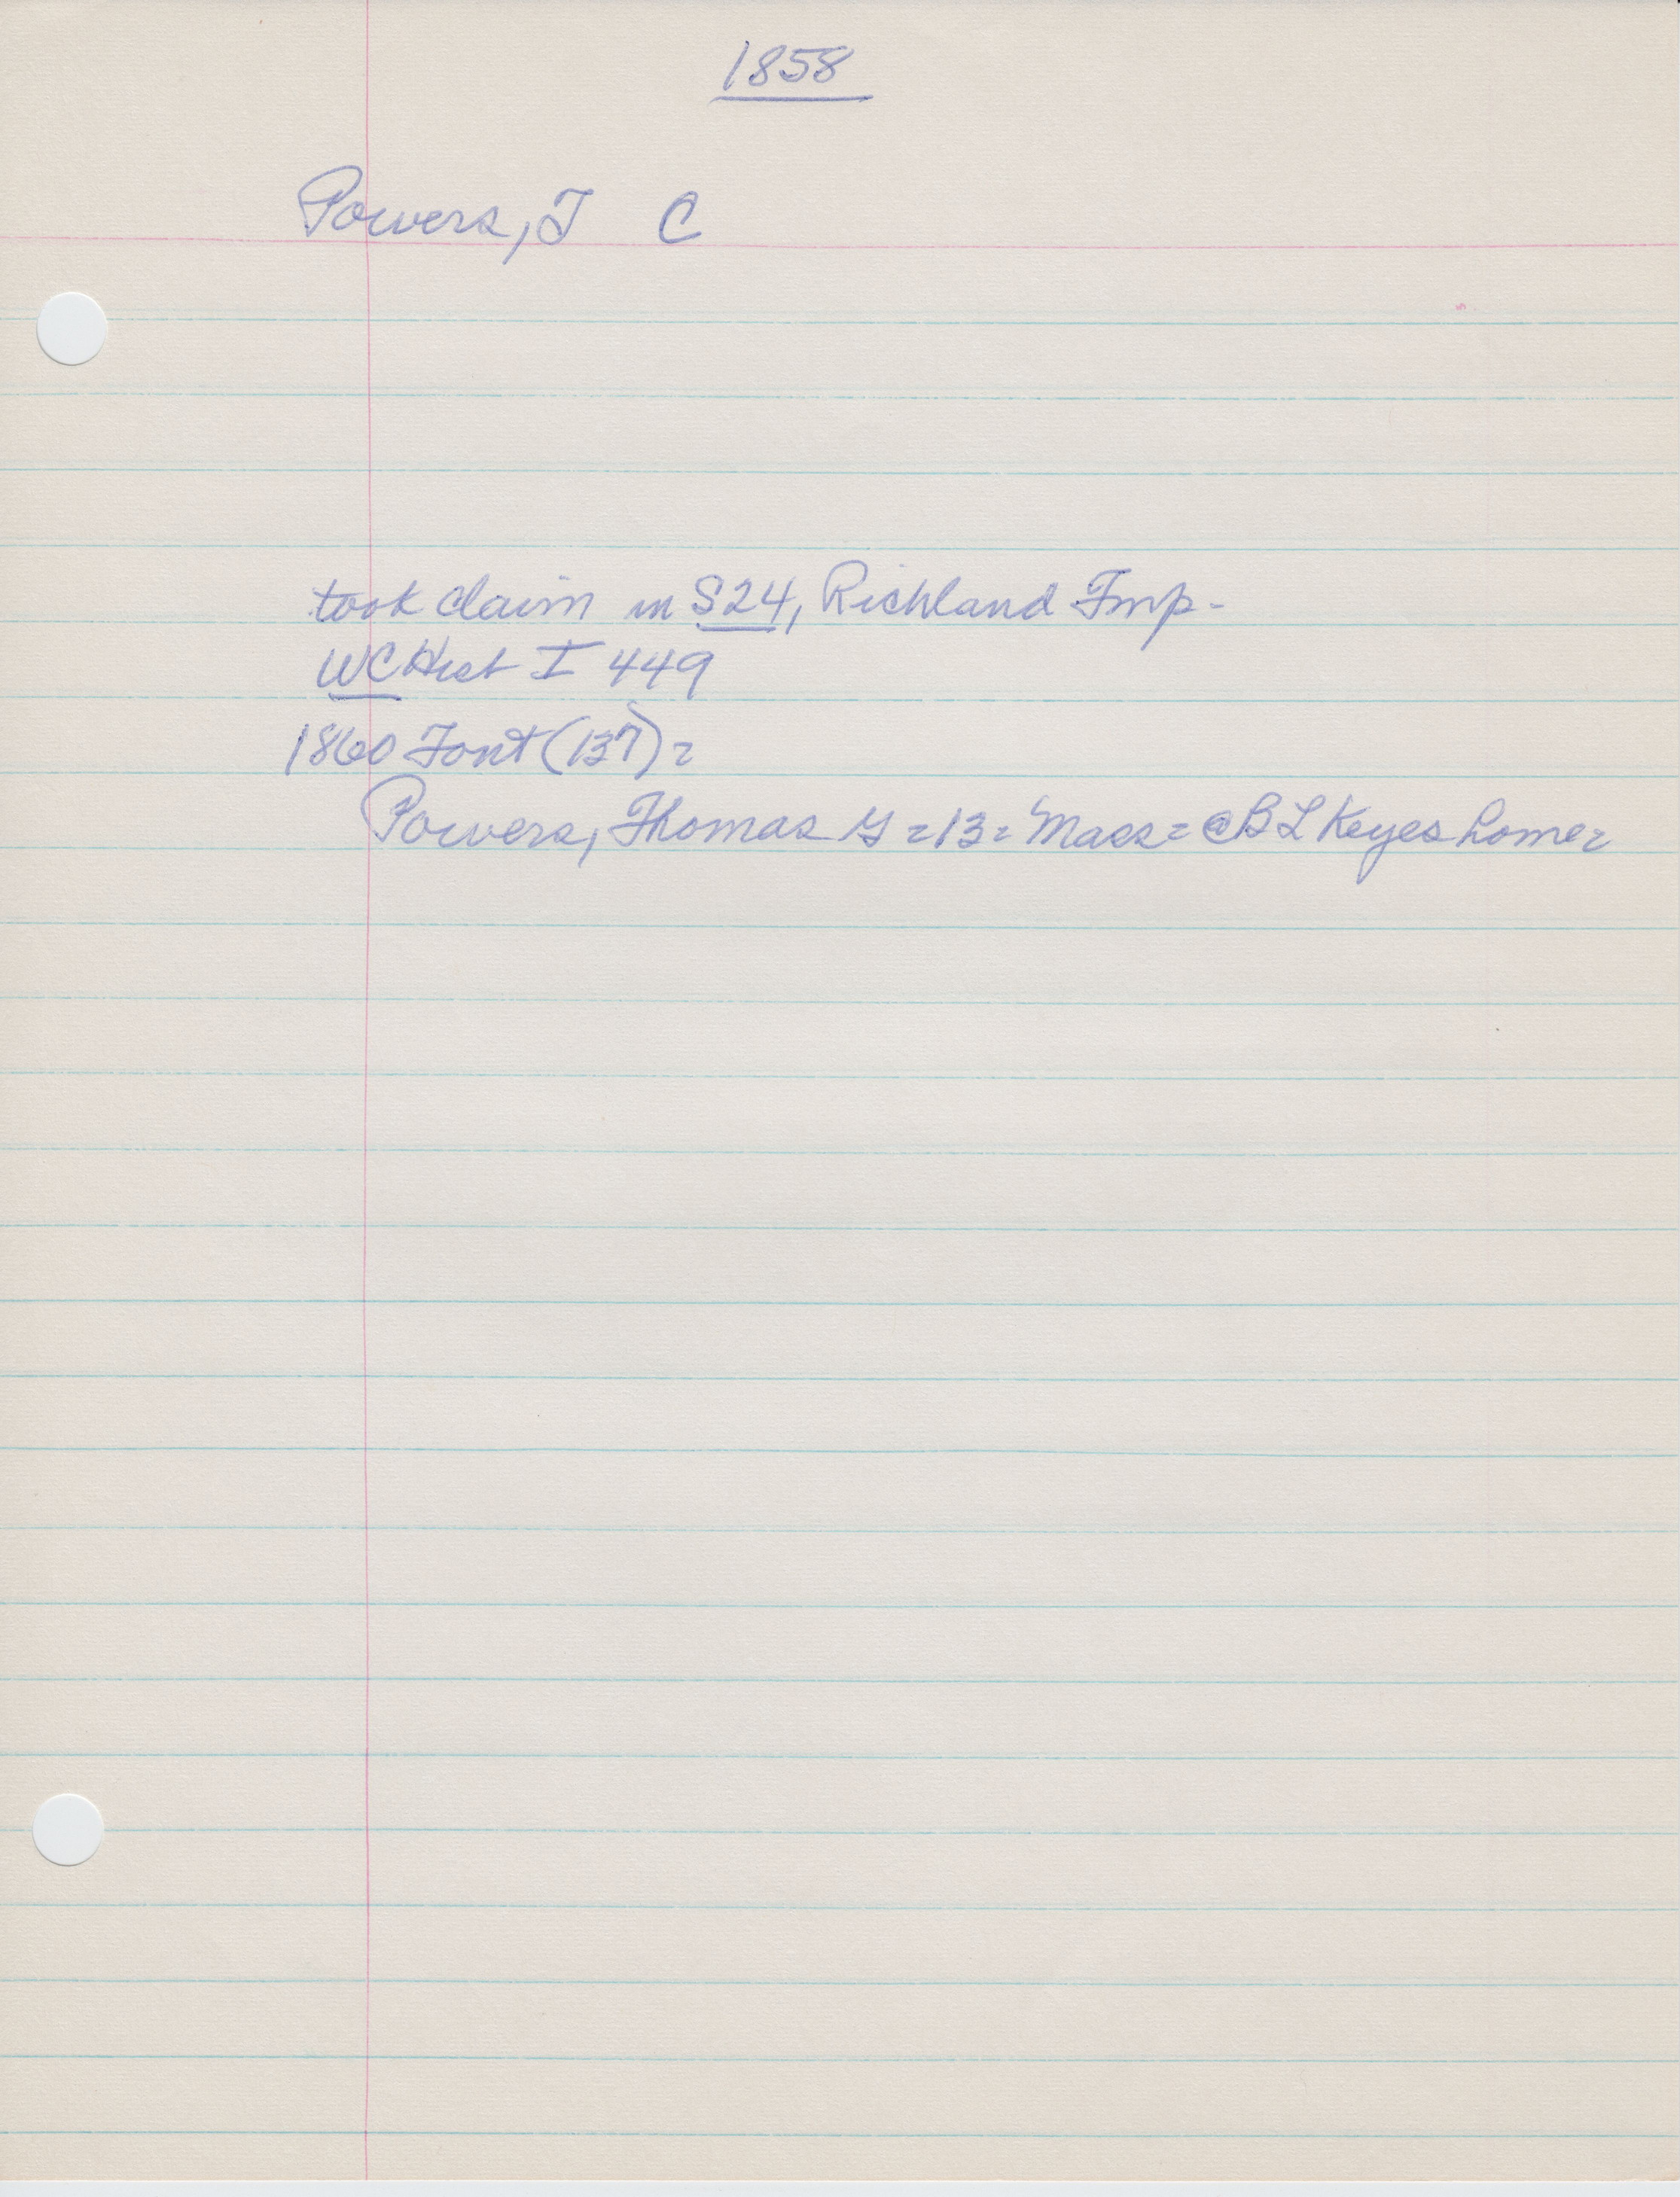 1858
Powers, T C
took claim in S24, Richland Twp-
WC Hist I 449
1860 Font (137) =
Powers, Thomas G = 13 = Mass = @ B L Keyes home =